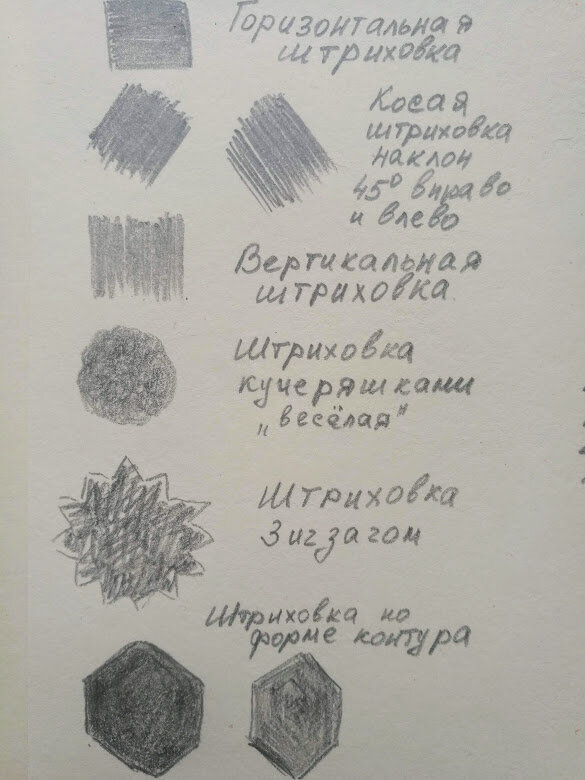 Горизонтальная
штриховка
Косая
штриховка
наклон
45° вправо
и влево
Вертикальная
штриховка
Штриховка
кучеряшками
„весёлая"
Штриховка
Зигзагом
Штриховка по
форме контура